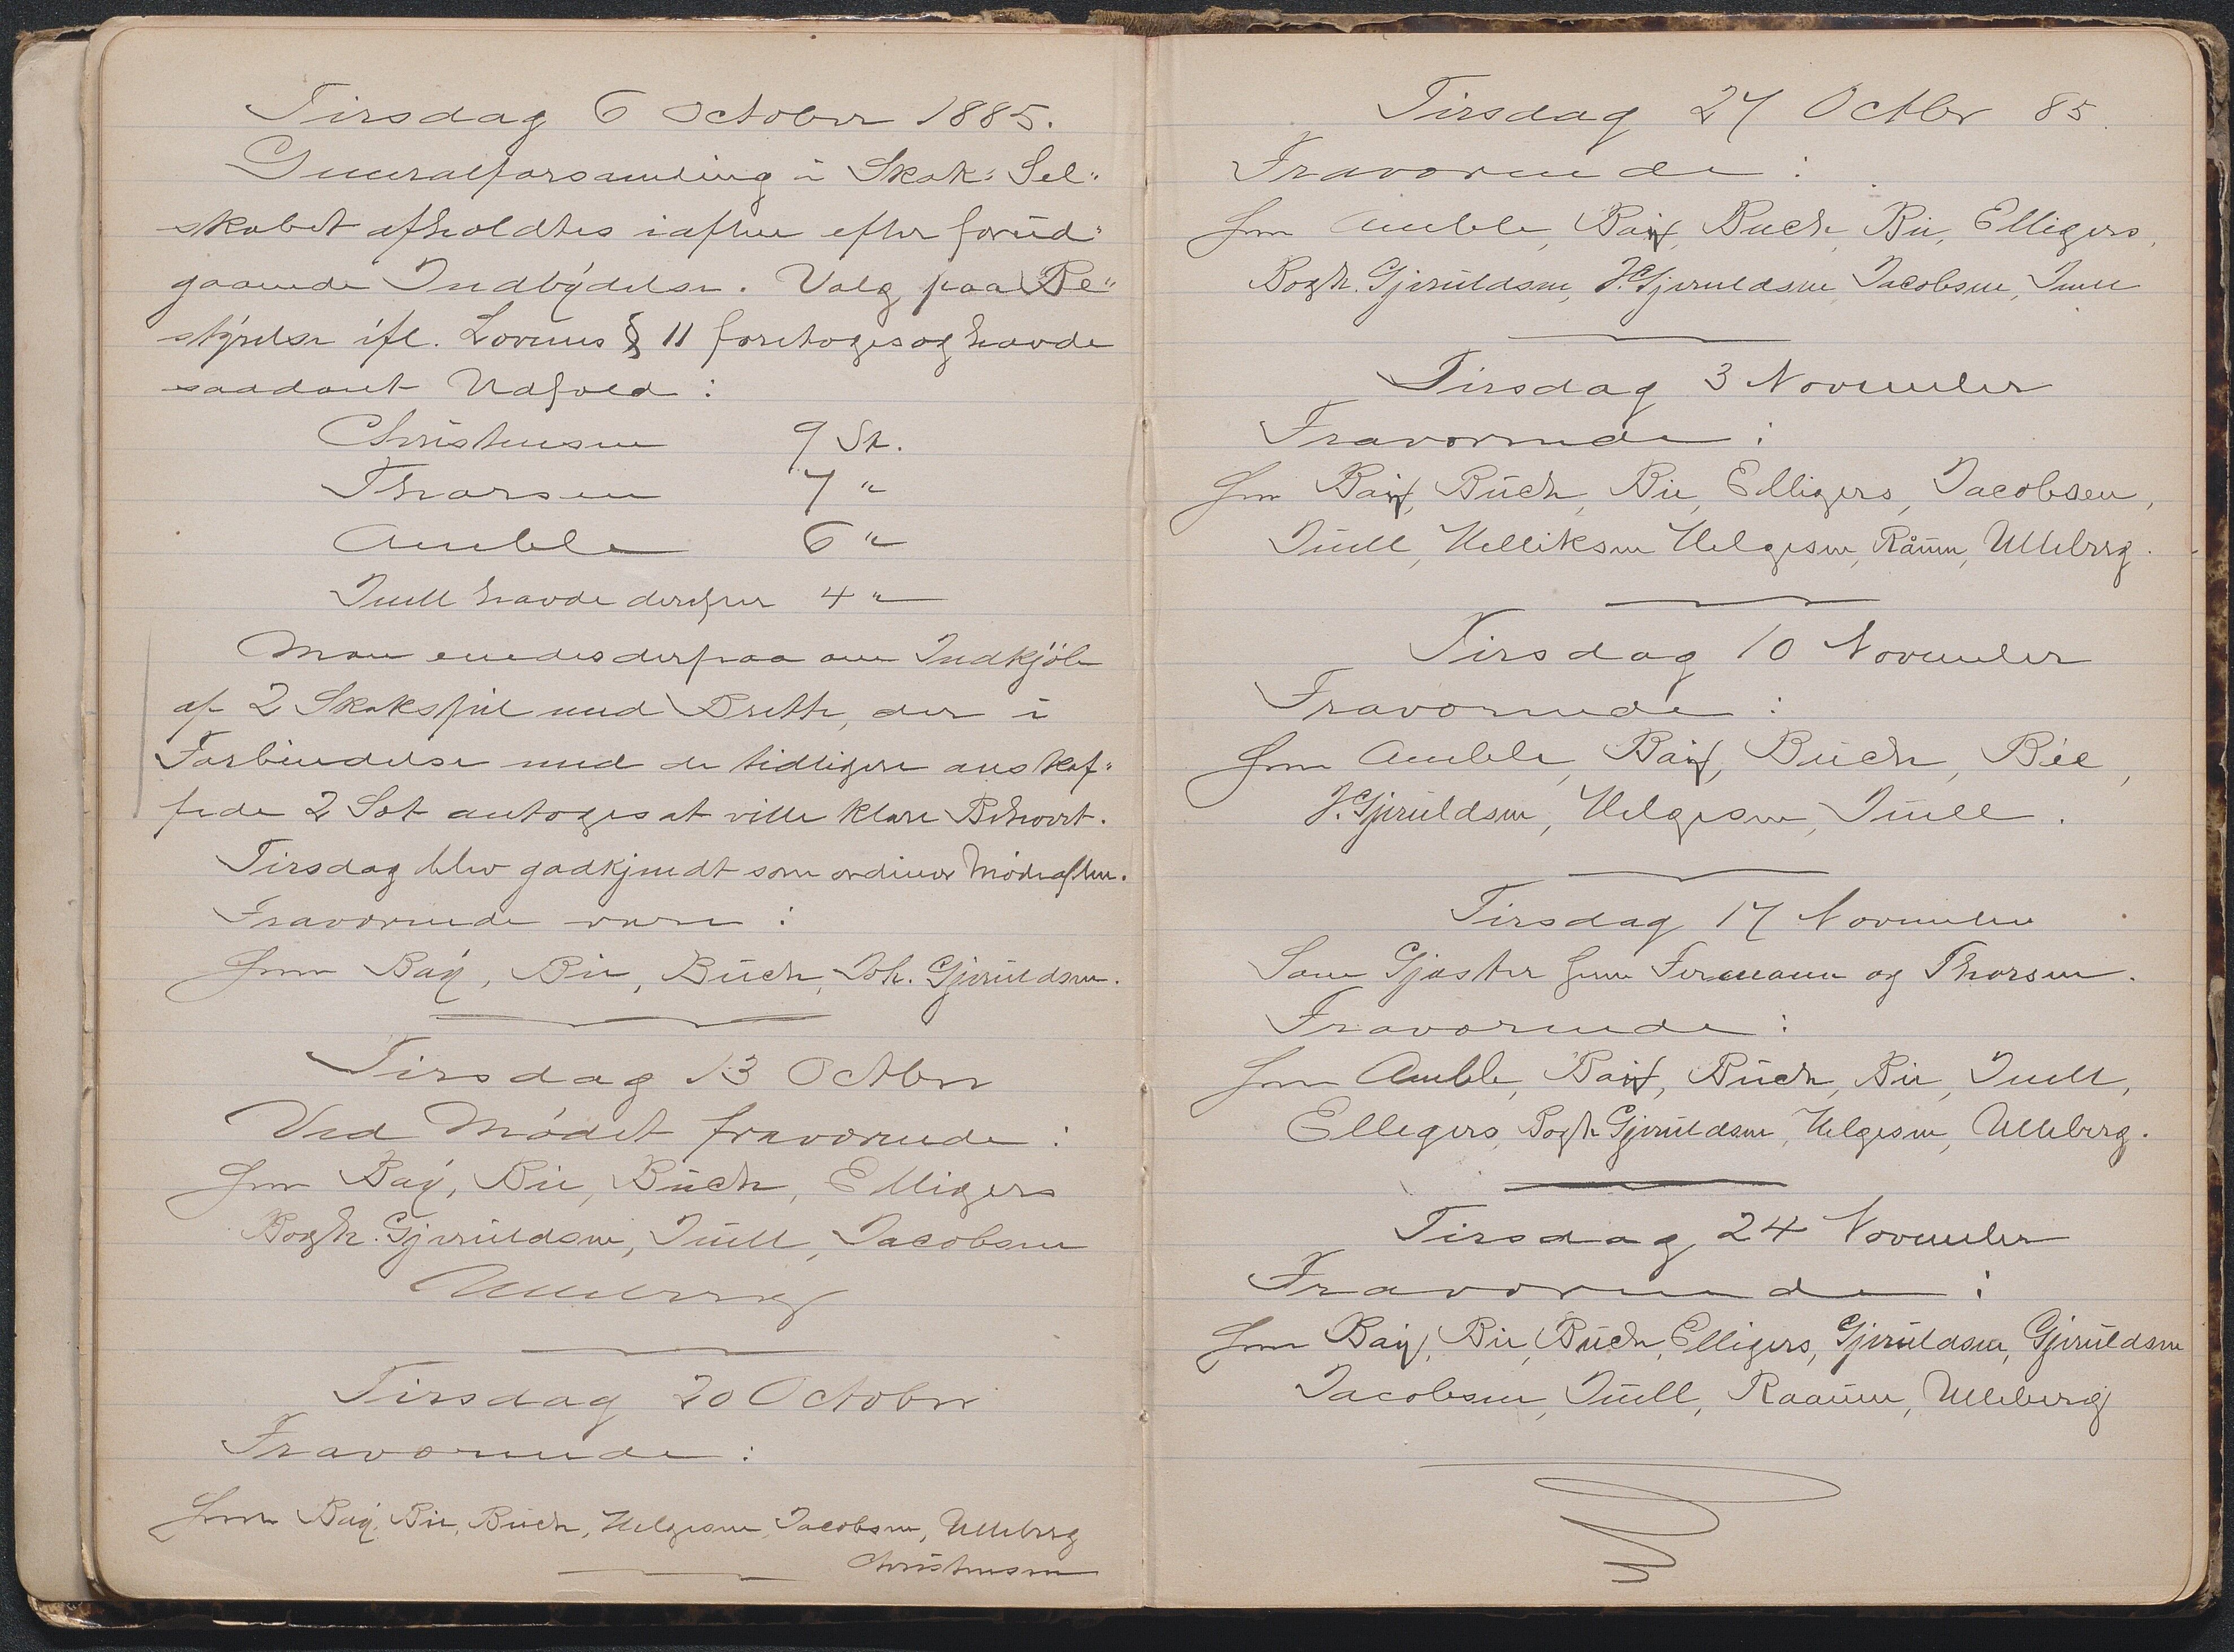 Tirsdag 6 October 1885.
Generalforsamling i Skak: Sel"
skabet afholdtes iaften efter forud"
gaaende Indbydelse. Valg paa Be"
styrelse ifl. Lovenes § 11 foretoges og havde
saadant Udfald:
Christensen 9 St.
Thorsen 7 "
Amble 6 "
Juell havde derefter 4 "
Man enedes derpaa om Indkjöb
af 2 Skakspil med Bretter, der i
Forbindelse med de tidligere anskaf"
fede 2 Sæt antoges at ville klare Behovet.
Tirsdag blev godkjendt som ordinær Mödeaften.
Fraværende vare:
Herr Bay, Bie, Buch, Joh. Gjeruldsen.
Tirsdag 13 Octber
Ved Mödet fraværende:
Herr Bay, Bie, Buch, Elligers
Bogh. Gjeruldsen, Juell, Jacobsen
Ulleberg
Tirsdag 20 October
Fraværende:
Herr Bay, Bie, Buch, Helgesen, Jacobsen, Ulleberg
Christensen
Tirsdag 27 Octbr 85.
Fraværende:
Herr Amble, Bay, Buch, Bie, Elligers,
Bogh. Gjeruldsen, J. Gjeruldsen, Jacobsen, Juell
Tirsdag 3 November
Fraværende:
Herr Bay, Buch, Bie, Elligers, Jacobsen,
Juell, Helliksen, Helgesen, Råum, Ulleberg.
Tirsdag 10 November
Fraværende:
Herr Amble, Bay, Buch, Bie,
J. Gjeruldsen, Helgesen, Juell.
Tirsdag 17 November
Som Gjæster Herr Fermann og Thorsen.
Fraværende:
Herr Amble, Bay, Buch, Bie, Juell,
Elligers, Bogh. Gjeruldsen, Helgesen, Ulleberg.
Tirsdag 24 November
Fraværende:
Herr Bay, Bie, Buch, Elligers, Gjeruldsen, Gjeruldsen
Jacobsen, Juell, Raaum, Ulleberg